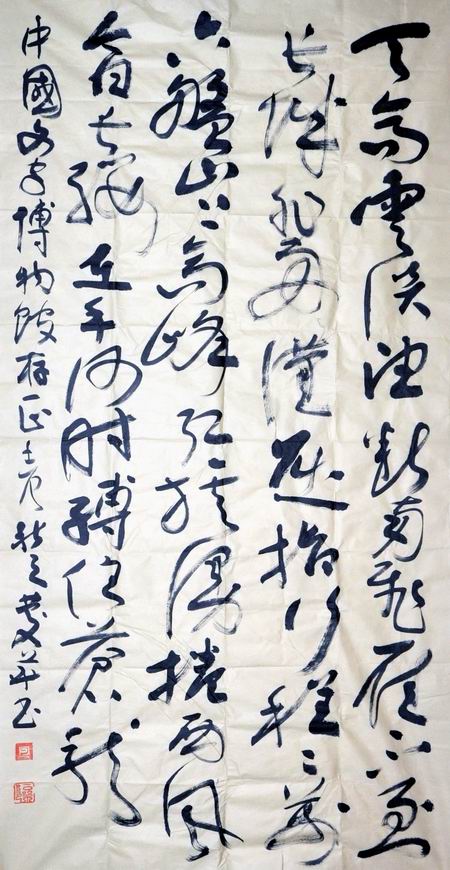 天高雲淡望斷南飛雁不到
長城非好漢屈指行程二萬
六盤山上高峰紅旗漫捲西風
今日長纓在手何時縛住蒼龍
中國文字博物館存正